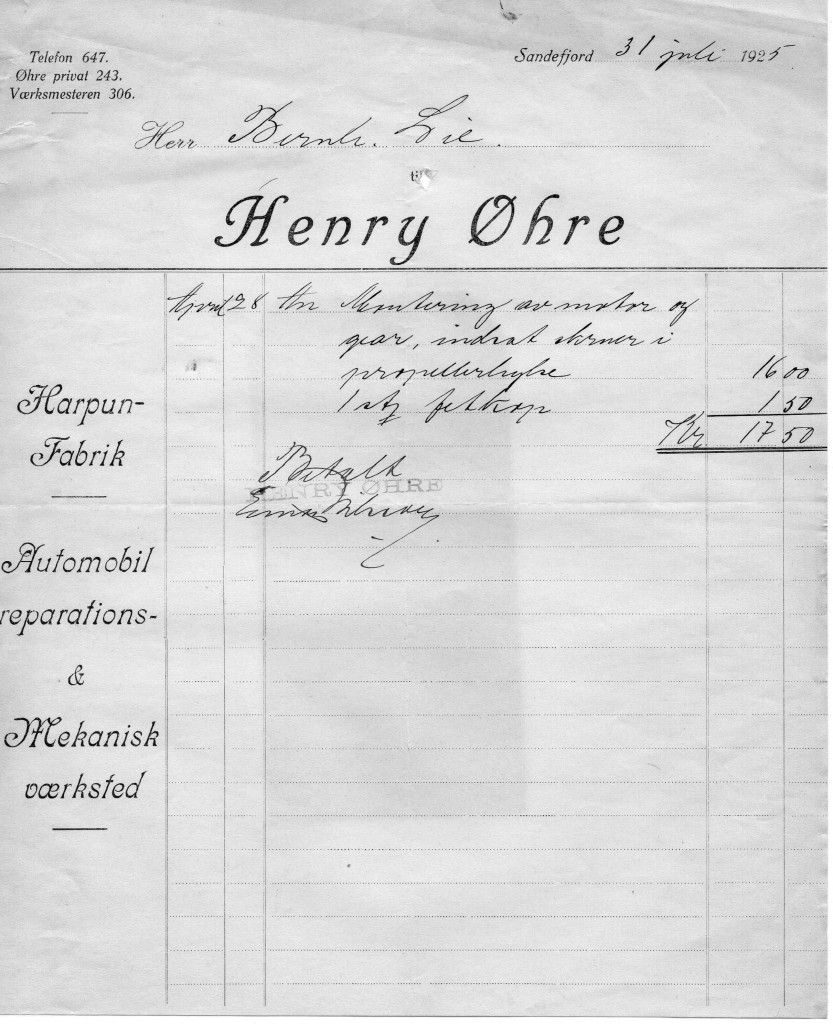 Telefon 647.
Øhre privat 243.
Værksmesteren 306.
Sandefjord 31 juli 1925
Herr Bernh. Lie.
til
Henry Øhre
April 28 An Montering av motor og
gear, indsat skruer i
propellerhylse 16 00
1 stk fettkop 1 50
Kr 17 50
Betalt
HENRY ØHRE
Harpun-
Fabrik
Automobil
reparations-
&
Mekanisk
værksted